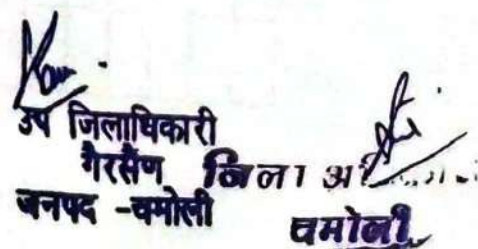 उप जिलाधिकारी
गैरसैंण
जनपद -चमोली
जिला
चमोली